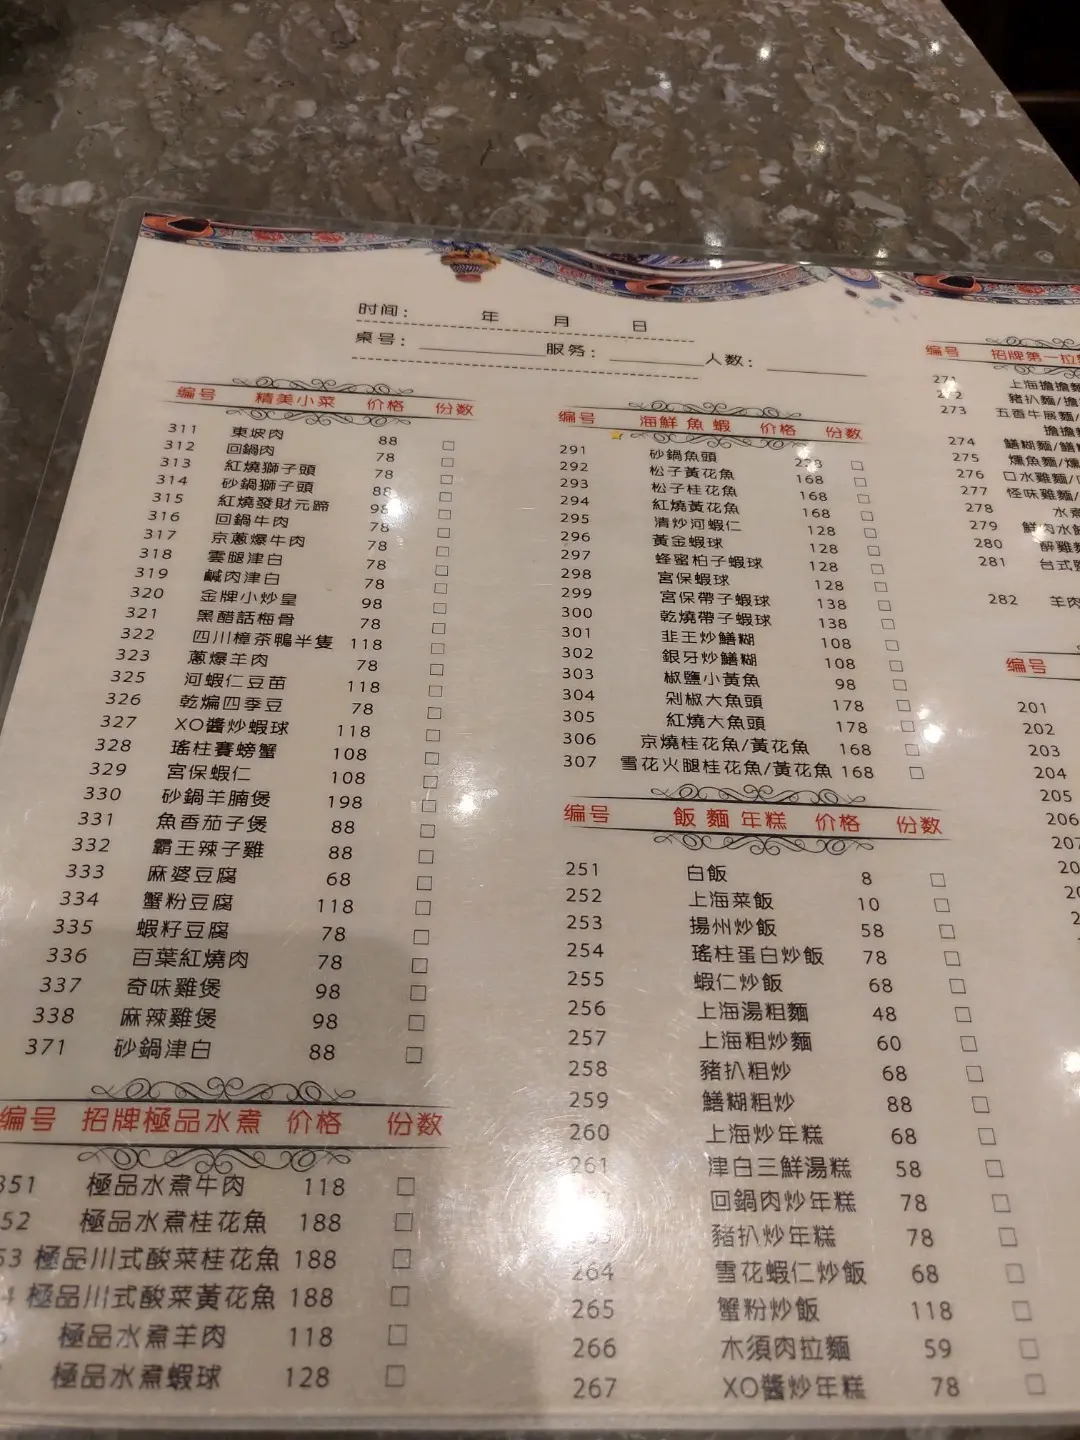 时间： 年 月 日
桌号： 服务： 人数：
编号 精美小菜 价格 份数
311 東坡肉 88 □
312 回鍋肉 78 □
313 紅燒獅子頭 78 □
314 砂鍋獅子頭 88 □
315 紅燒發財元蹄 98 □
316 回鍋牛肉 78 □
317 京蔥爆牛肉 78 □
318 雲腿津白 78 □
319 鹹肉津白 78 □
320 金牌小炒皇 98 □
321 黑醋話梅骨 78 □
322 四川樟茶鴨半隻 118 □
323 蔥爆羊肉 78 □
325 河蝦仁豆苗 118 □
326 乾煸四季豆 78 □
327 XO醬炒蝦球 118 □
328 瑤柱賽螃蟹 108 □
329 宮保蝦仁 108 □
330 砂鍋羊腩煲 198 □
331 魚香茄子煲 88 □
332 霸王辣子雞 88 □
333 麻婆豆腐 68 □
334 蟹粉豆腐 118 □
335 蝦籽豆腐 78 □
336 百葉紅燒肉 78 □
337 奇味雞煲 98 □
338 麻辣雞煲 98 □
371 砂鍋津白 88 □
编号 招牌極品水煮 价格 份数
351 極品水煮牛肉 118 □
52 極品水煮桂花魚 188 □
53 極品川式酸菜桂花魚 188 □
4 極品川式酸菜黃花魚 188 □
極品水煮羊肉 118 □
極品水煮蝦球 128 □
编号 海鮮魚蝦 价格 份数
291 砂鍋魚頭 □
292 松子黃花魚 168 □
293 松子桂花魚 168 □
294 紅燒黃花魚 168 □
295 清炒河蝦仁 128 □
296 黃金蝦球 128 □
297 蜂蜜柏子蝦球 128 □
298 宮保蝦球 128 □
299 宮保帶子蝦球 138 □
300 乾燒帶子蝦球 138 □
301 韭王炒鱔糊 108 □
302 銀牙炒鱔糊 108 □
303 椒鹽小黃魚 98 □
304 剁椒大魚頭 178 □
305 紅燒大魚頭 178 □
306 京燒桂花魚/黃花魚 168 □
307 雪花火腿桂花魚/黃花魚 168 □
编号 飯麵年糕 价格 份数
251 白飯 8 □
252 上海菜飯 10 □
253 揚州炒飯 58 □
254 瑤柱蛋白炒飯 78 □
255 蝦仁炒飯 68 □
256 上海湯粗麵 48 □
257 上海粗炒麵 60 □
258 豬扒粗炒 68 □
259 鱔糊粗炒 88 □
260 上海炒年糕 68 □
261 津白三鮮湯糕 58 □
回鍋肉炒年糕 78 □
豬扒炒年糕 78 □
264 雪花蝦仁炒飯 68 □
265 蟹粉炒飯 118 □
266 木須肉拉麵 59 □
267 XO醬炒年糕 78 □
编号 招牌第一拉
271 上海擔擔麵
272 豬扒麵/擔
273 五香牛展麵/
擔擔
274 鱔糊麵/鱔
275 燻魚麵/燻
276 口水雞麵/
277 怪味雞麵/
278 水煮
279 鮮肉水餃
280 醉雞麵
281 台式
282 羊肉
编号
201
202
203
204
205
206
207